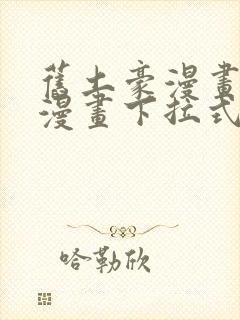 舊土豪漫畫
漫畫下拉式
哈勒欣